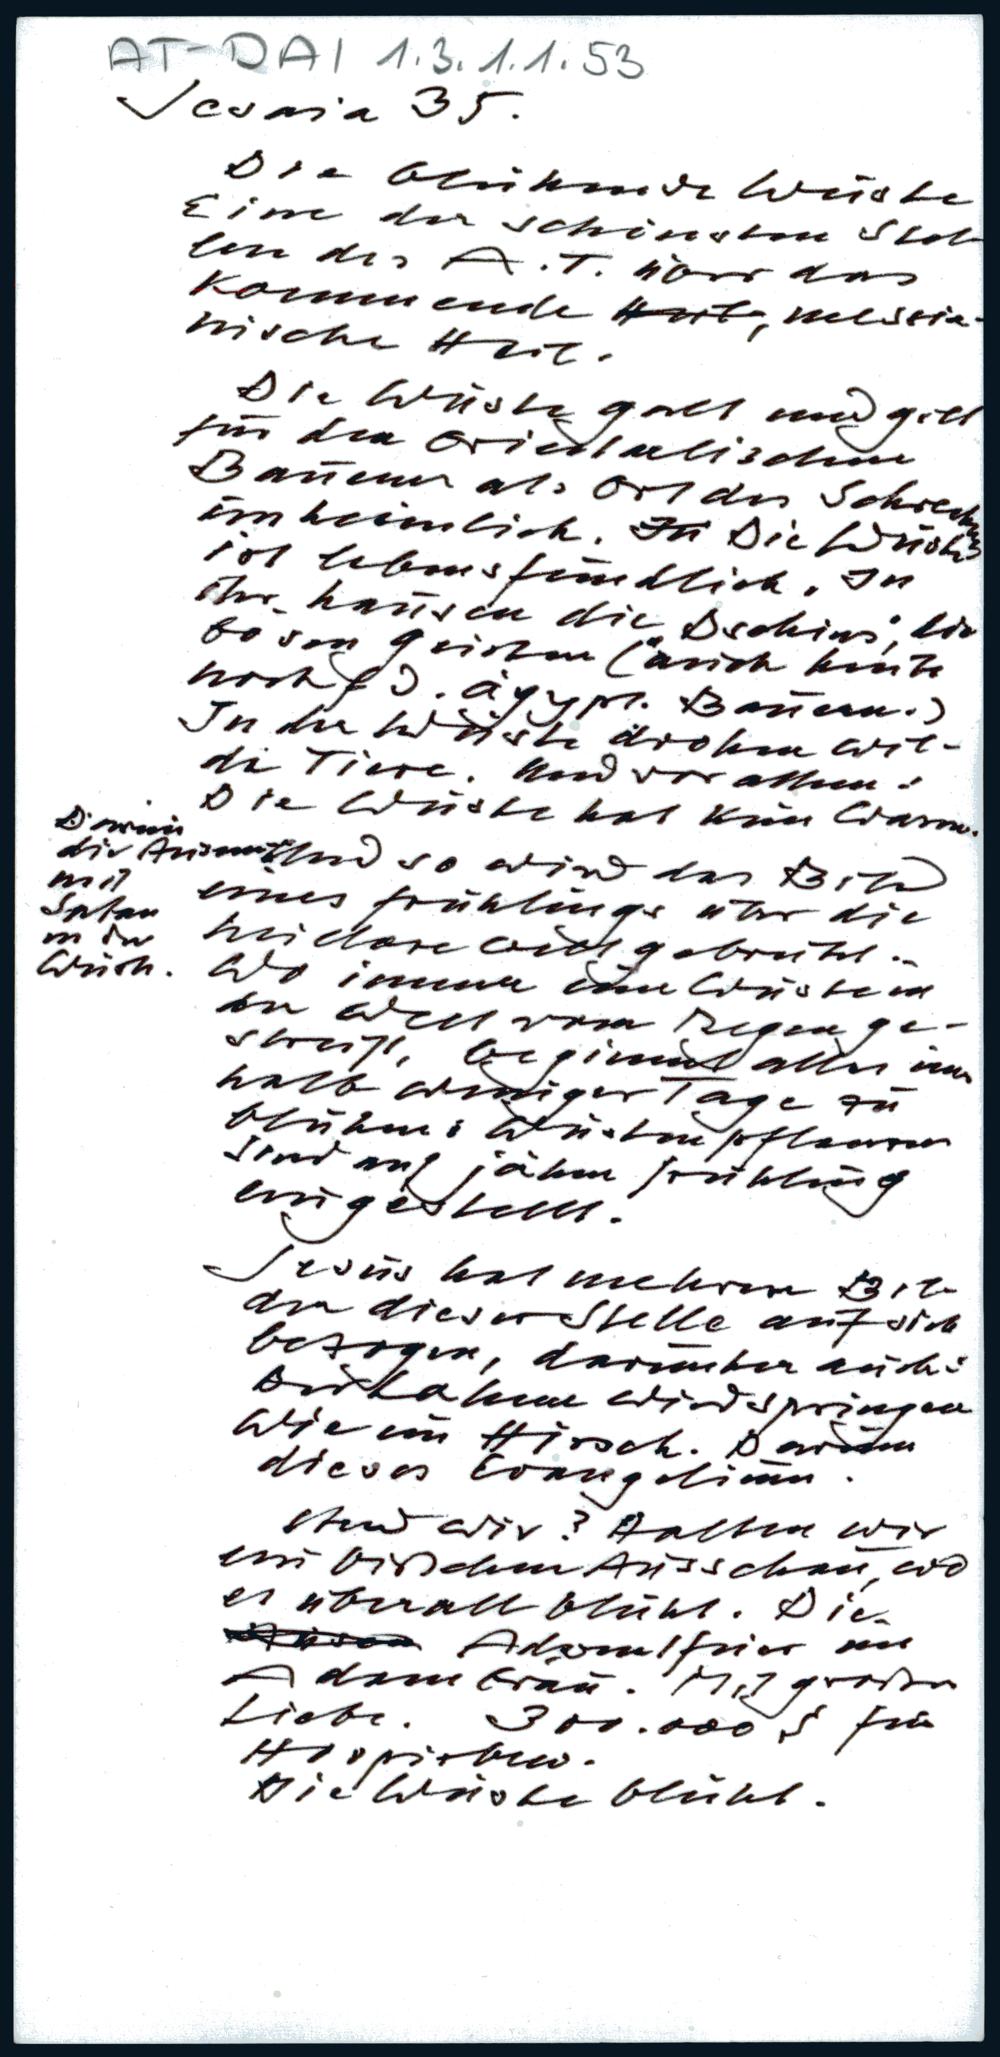 AT-DAI 1.3.1.1.53
Jesaia 35.
Die blühende Wüste
Eine der schönsten Stel-
len des A.T. über das
kommende Heil, messia-
nische Heil.
Die Wüste galt und gilt
für den orientalischen
Bauern als Ort des Schreckens
unheimlich. In Die Wüste
ist lebensfeindlich. In
ihr hausen die "Dschins", die
bösen Geister (auch heute
noch f. d. ägypt. Bauern.)
In der Wüste drohen wil-
de Tiere. Und vor allem:
Die Wüste hat kein Wasser.
Darum
die
mit
Satan
in der
Wüste.
Und so wird das Bild
eines Frühlings über die
gebreitet..
Wo immer eine Wüste in
der Welt vom Regen ge-
streift, beginnt alles inner
halb weniger Tage zu
blühen: Wüstenpflanzen
sind auf jähen Frühling
eingestellt.
Jesus hat mehrere Bil-
der dieser Stelle auf sich
bezogen, darunter auch:
Der Lahme wird springen
wie ein Hirsch. Darum
dieses Evangelium.
Und wir? Halten wir
ein bißchen Ausschau, wo
es überall blüht. Die
Adventfeier im
Adambräu. Mit großer
Liebe. 300.000 S für
Hospizbew.
Die Wüste blüht.